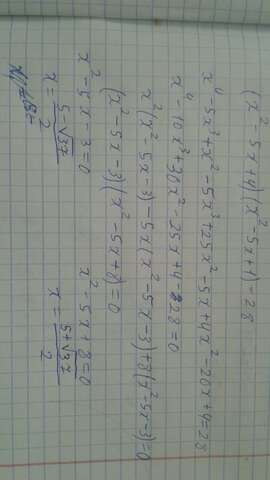 (x²-5x+4)(x²-5x+1)=28
x⁴-5x³+x²-5x³+25x²-5x+4x²-20x+4=28
x⁴-10x³+30x²-25x+4-28=0
x²(x²-5x-3)-5x(x²-5x-3)+8(x²-5x-3)=0
(x²-5x-3)(x²-5x+8)=0
x²-5x-3=0 x²-5x+8=0
x=(5-√37)/2 x=(5+√37)/2